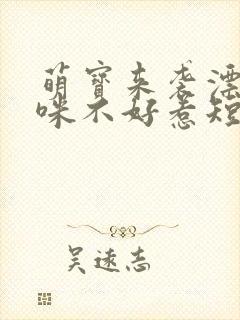 萌宝来袭漂
咪不好惹短
吴远志